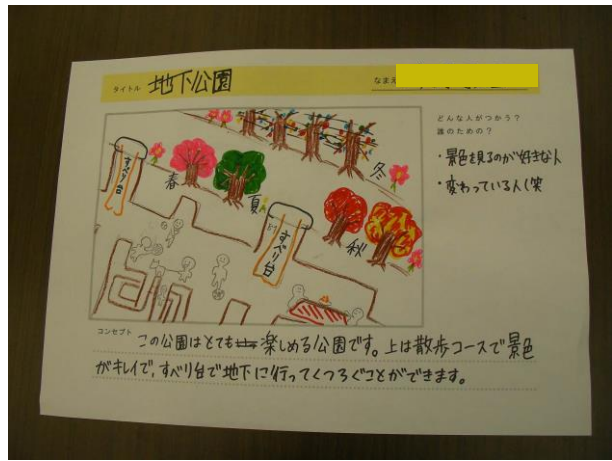 タイトル 地下公園
なまえ
どんな人がつかう？
誰のための？
・景色を見るのが好きな人
・変わっている人(笑
冬
春
夏
秋
すべり台
すべり台
コンセプト この公園はとても楽しめる公園です。上は散歩コースで景色
がキレイで、すべり台で地下に行ってくつろぐことができます。